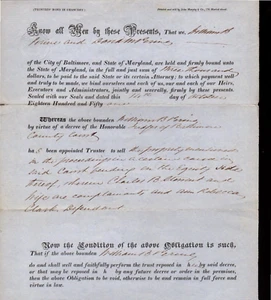 Know all Men by these Presents, That we William B
Perine and David M Perine
of the City of Baltimore, and State of Maryland, are held and firmly bound unto
the State of Maryland, in the full and just sum of three thousand
dollars, to be paid to the said State or its certain Attorney: to which payment well
and truly to be made, we bind ourselves and each of us, our and each of our Heirs,
Executors and Administrators, jointly and severally, firmly by these presents
Sealed with our Seals and dated this day of October
Eighteen Hundred and Fifty
Whereas the above bounden William B. Perine
by virtue of a decree of the Honorable Judges of Baltimore
County Court
ha s been appointed Trustee to sell the property mentioned
in the proceedings in a certain cause in
said Court pending in the Equity side
thereof, wherein Charles B
wife are complainants and
Clark Defendant
Now the Condition of the above Obligation is such,
That if the above bounden William B. Perine
do and shall well and faithfully perform the trust reposed in h by said decree,
or that may be reposed in h by any future decree or order in the premises,
then the above Obligation to be void, otherwise to be and remain in full force and
virtue in law.